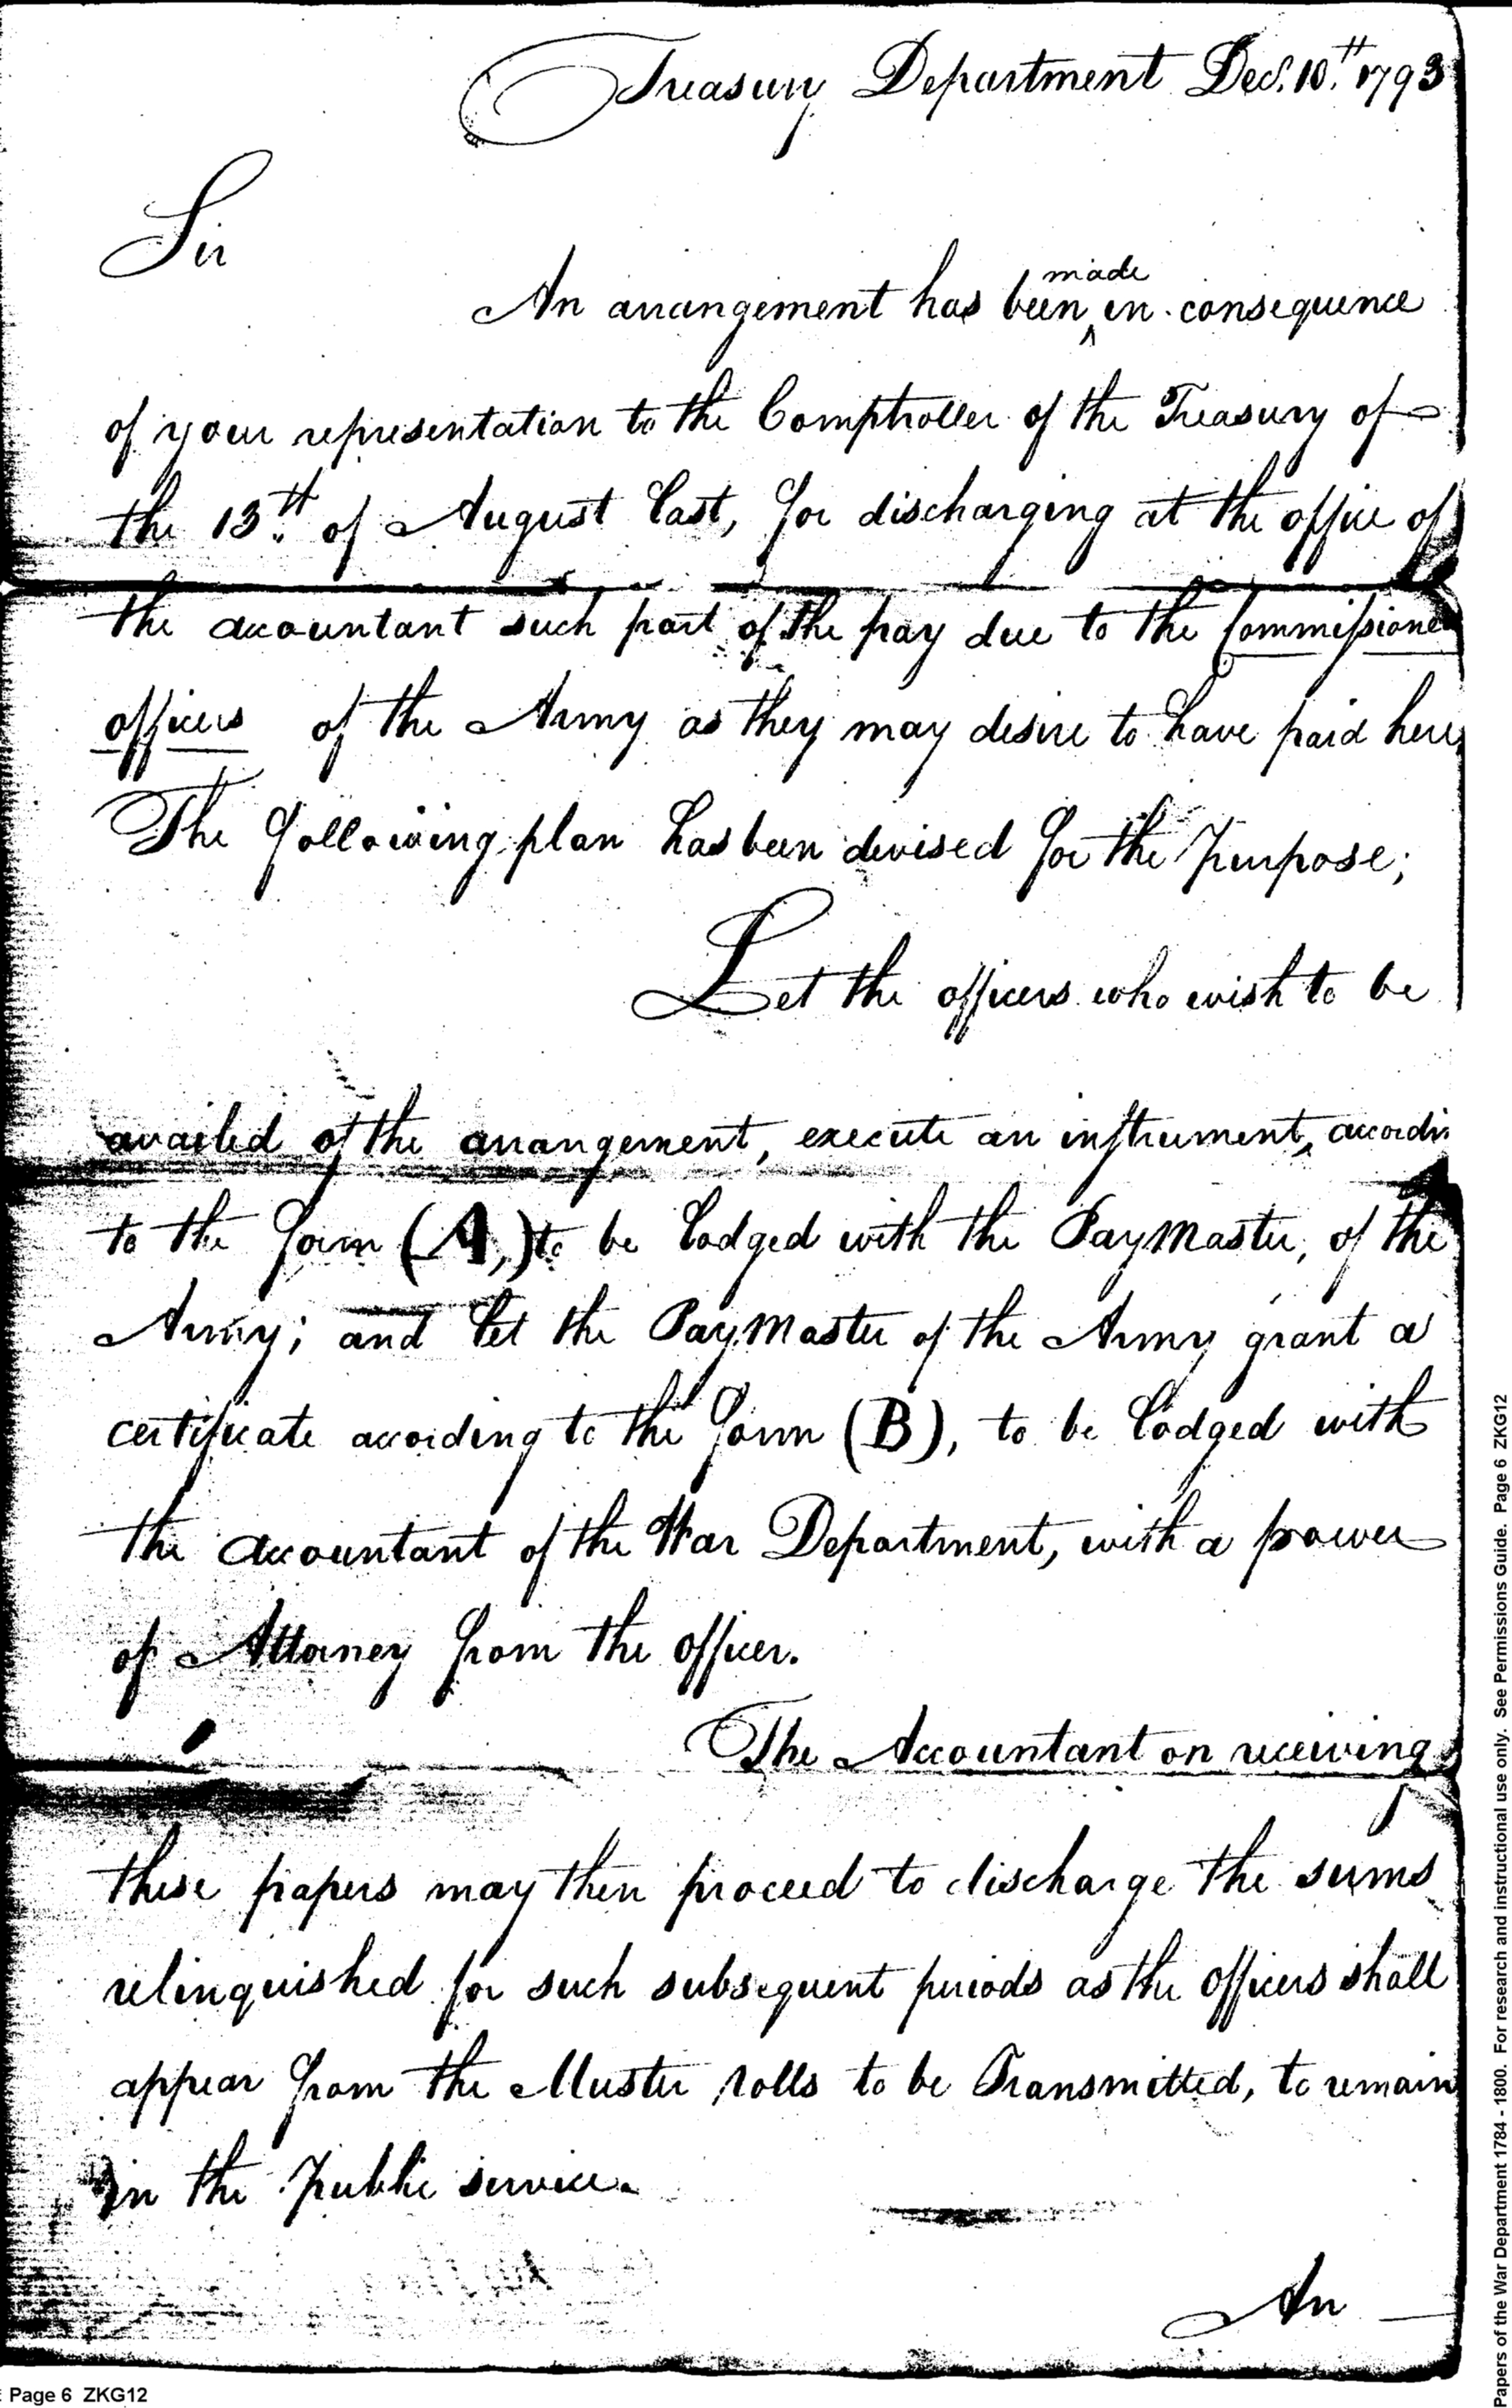 Treasury Department Dec.r 10.th 1793
Sir
An arrangement has been made in consequence
of your representation to the Comptroller of the Treasury of
the 13.th of August last, for discharging at the office of
the accountant such part of the pay due to the Commissioned
officers of the Army as they may desire to have paid here,
The following plan has been devised for the Purpose;
Let the officers who wish to be
availed of the arrangement, execute an instrument, accordin
to the form (A,) to be lodged with the PayMaster, of the
Army; and let the PayMaster of the Army grant a
certificate according to the form (B), to be lodged with
the accountant of the War Department, with a power
of Attorney from the officer.
The Accountant on receiving
these papers may then proceed to discharge the sums
relinquished for such subsequent periods as the officers shall
appear from the Muster rolls to be Transmitted, to remain
in the Public service.
An
Page 6 ZKG12
Papers of the War Department 1784 - 1800. For research and instructional use only. See Permissions Guide. Page 6 ZKG12